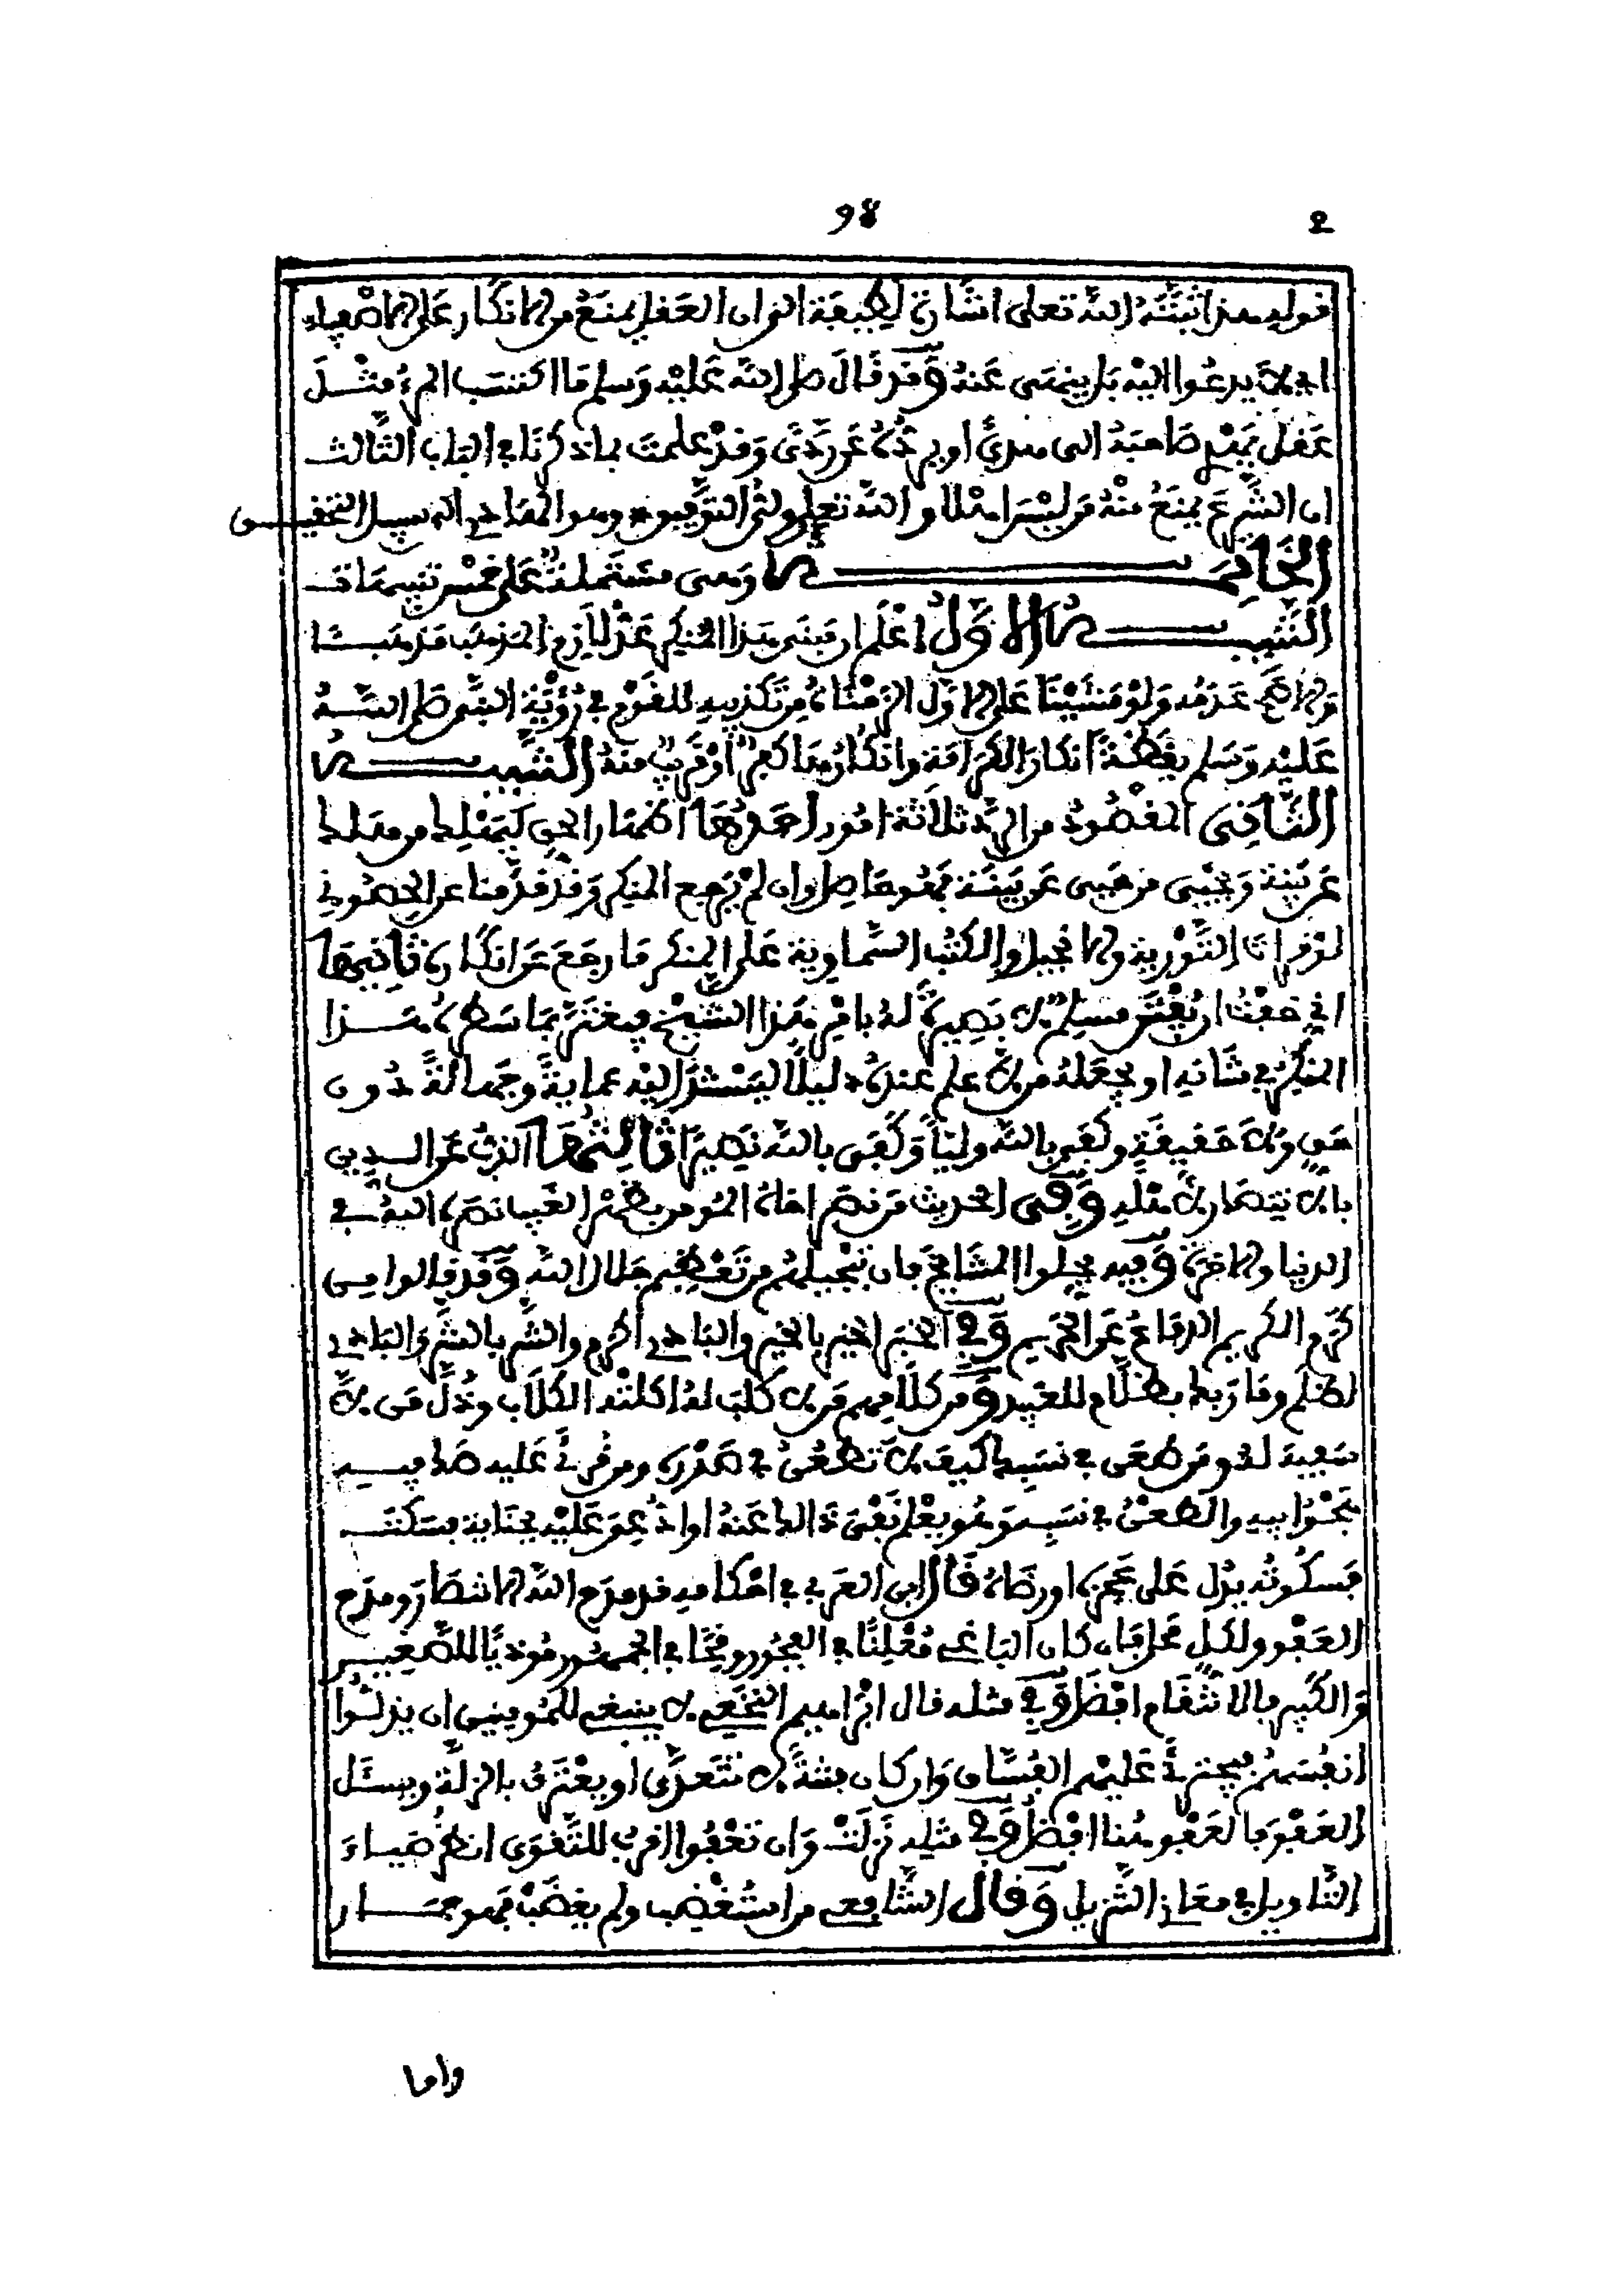 98 2
قوله هذا ثبته الله تعلى اشارة لطيفة الى ان العقل يمنع من الانكار على الاصفياء
اي لا يدعوا اليه بل ينهى عنه وقد قال صلى الله عليه وسلم ما اكتسب المرء مثل
عقل يهدي صاحبه الى هدى او يرده عن ردى وقد علمت بما ذكرنا في الباب الثالث
ان الشرع يمنع منه وليس الا والله تعلى ولي التوفيق وهو الهادي الى سبيل التحقيق
الخاتمة وهى مشتملة على خمس تنبيهات
التنبيه الاول اعلم ان مبنى هذا المنكر عد لازم المذهب مذهبا
والاصح عدمه ولو مشينا على الاول الزمناه من تكذيبه للقوم في رؤية النبي صلى الله
عليه وسلم يقظة انكار الكرامة وانكارها كفر او قريب منه التنبيه
الثاني المقصود من الرد ثلاثة امور احدها اظهار الحق ليهلك من هلك
عن بينة ويحيى من حيي عن بينة فهو حاصل وان لم يرجع المنكر وقد قدمنا عن الحضرمي
لو قرات التورية والانجيل والكتب السماوية على المنكر ما رجع عن انكاره ثانيها
اني خفت ان يغتر مسلم لا بصيرة له بامر هذا الشيخ فيغتر بما سطره هذا
المنكر في شانه او يجعله من لا علم عنده دليلا ليستند اليه عماية وجهالة دون
هدى ولا حقيقة وكفى بالله وليا وكفى بالله نصيرا ثالثها الذب عن الدين
بالانتصار لاهله وفى الحديث من نصر اخاه المومن بظهر الغيب نصره الله في
الدنيا والاخرة وفيه بجلوا المشايخ فان تبجيلهم من تعظيم جلال الله وقد قالوا من
كرم الكريم الدفاع عن الحريم وفي الخبر الخير بالخير والبادي اكرم والشر بالشر والبادي
اظلم وما ربك بظلام للعبيد ومن كلامهم من لا كلب له اكلته الكلاب وذل من لا
سفيه له ومن طعن في نسبك كيف لا تطعن في هدره ومن قرئ عليه
بجوابه والطعن في نسبه وهو يعلم نفي ذالك عنه او ادعي عليه بجناية فسكت
فسكوته يدل على عجزه او رضاه قال ابن العربي في احكامه قد مدح الله الانتصار ومدح
العفو ولكل محل فان كان الباغي معلنا في الفجور وقحا في الجمهور موذيا للصغير
والكبير فالانتقام افضل وفي مثله قال ابراهيم النخعي لا ينبغي للمومنين ان يذلوا
انفسهم فيجترئ عليهم الفساق وان كان فلتة لا تتعدى او يعترف بالزلة ويسئل
العفو فالعفو هنا افضل وفي مثله نزلت وان تعفوا اقرب للتقوى انظر ضياء
التاويل في معاني التنزيل وقال الشافعي من استغضب ولم يغضب فهو حمار
واما